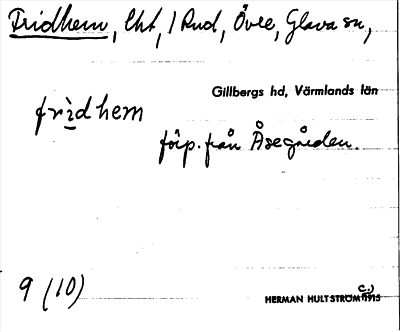 Fridhem, lht, / Rud, Övre, Glava sn,
Gillbergs hd, Värmlands län
frìdhem
förp. från Åsegården.
9 (10)
HERMAN HULTSTRÖM (c.) 1915